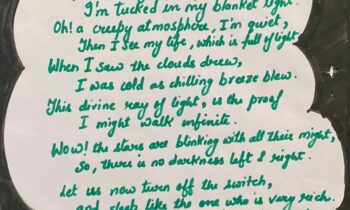 I'm tucked in my blanket tight.
Oh! a creepy atmosphere, I'm quiet,
Then I see my life, which is full of light
When I saw the clouds drew,
I was cold as chilling breeze blew.
This divine ray of light, is the proof
I might walk infinite.
Wow! the stars are blinking with all their might,
So, there is no darkness left & right.
Let us now turn off the switch,
and sleep like the one who is very rich.